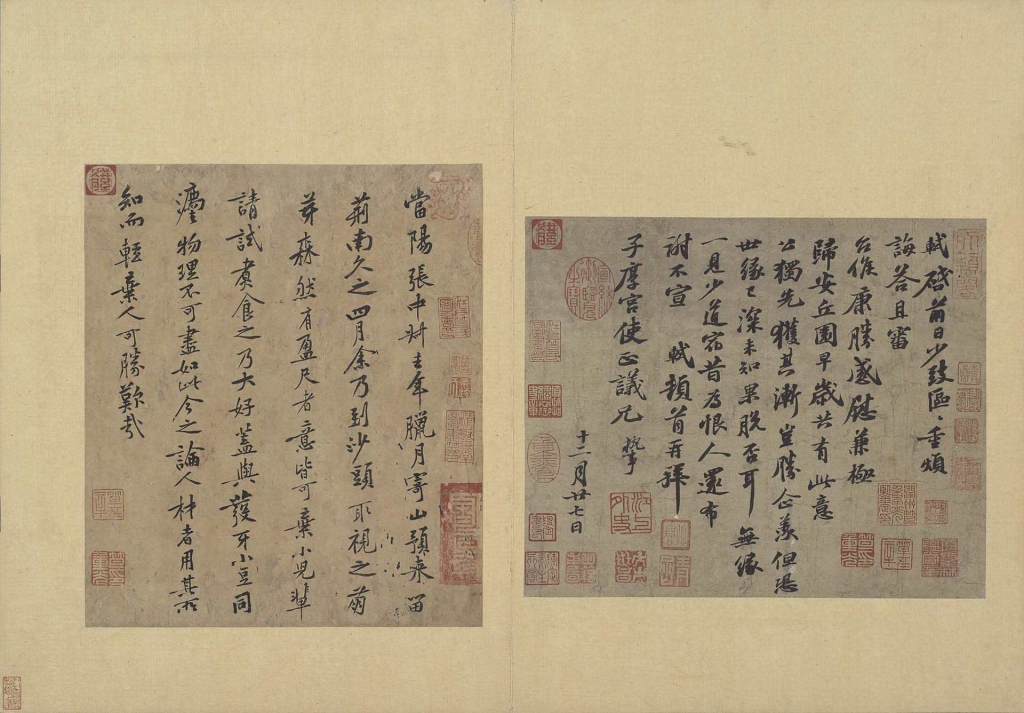 軾啓前日少致區〻重煩
誨答且審
台候康勝感慰兼極
歸安丘園早歲共有此意
公獨先獲其漸豈勝企羨但恐
世緣已深未知果脫否耳無緣
一見少道宿昔為恨人還布
謝不宣 軾頓首再拜
子厚宮使正議兄 執事
十二月廿七日
當陽張中叔去年臘月寄山預來留
荊南久之四月余乃到沙頭取視之萌
芽森然有盈尺者意皆可棄小兒輩
請試煑食之乃大好蓋與發牙小豆同
灋物理不可盡如此今之論人材者用其所
知而輕棄人可勝歎哉